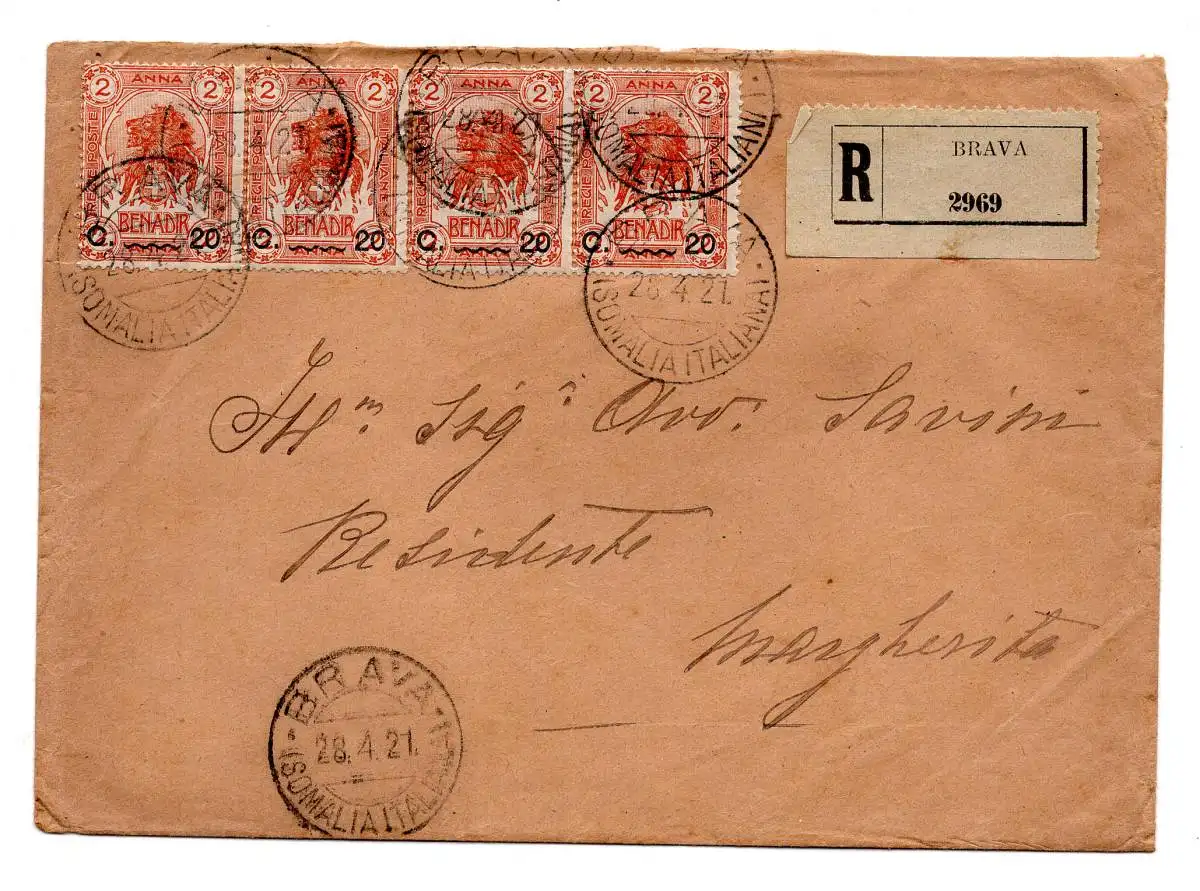 2 ANNA 2
REGIE POSTE
ITALIANE
BENADIR
C. 20
2 ANNA 2
ITALIANE
BENADIR
C. 20
2 ANNA 2
REGIE POSTE
BENADIR
C. 20
2 ANNA 2
REGIE POSTE
ITALIANE
BENADIR
C. 20
R
BRAVA
2969
28.4.21
(SOMALIA ITALIANA)
28.4.21.
(SOMALIA ITALIANA)
Ill.m Sig.r Avv. Savini
Residente
Margherita
BRAVA
28.4.21.
(SOMALIA ITALIANA)